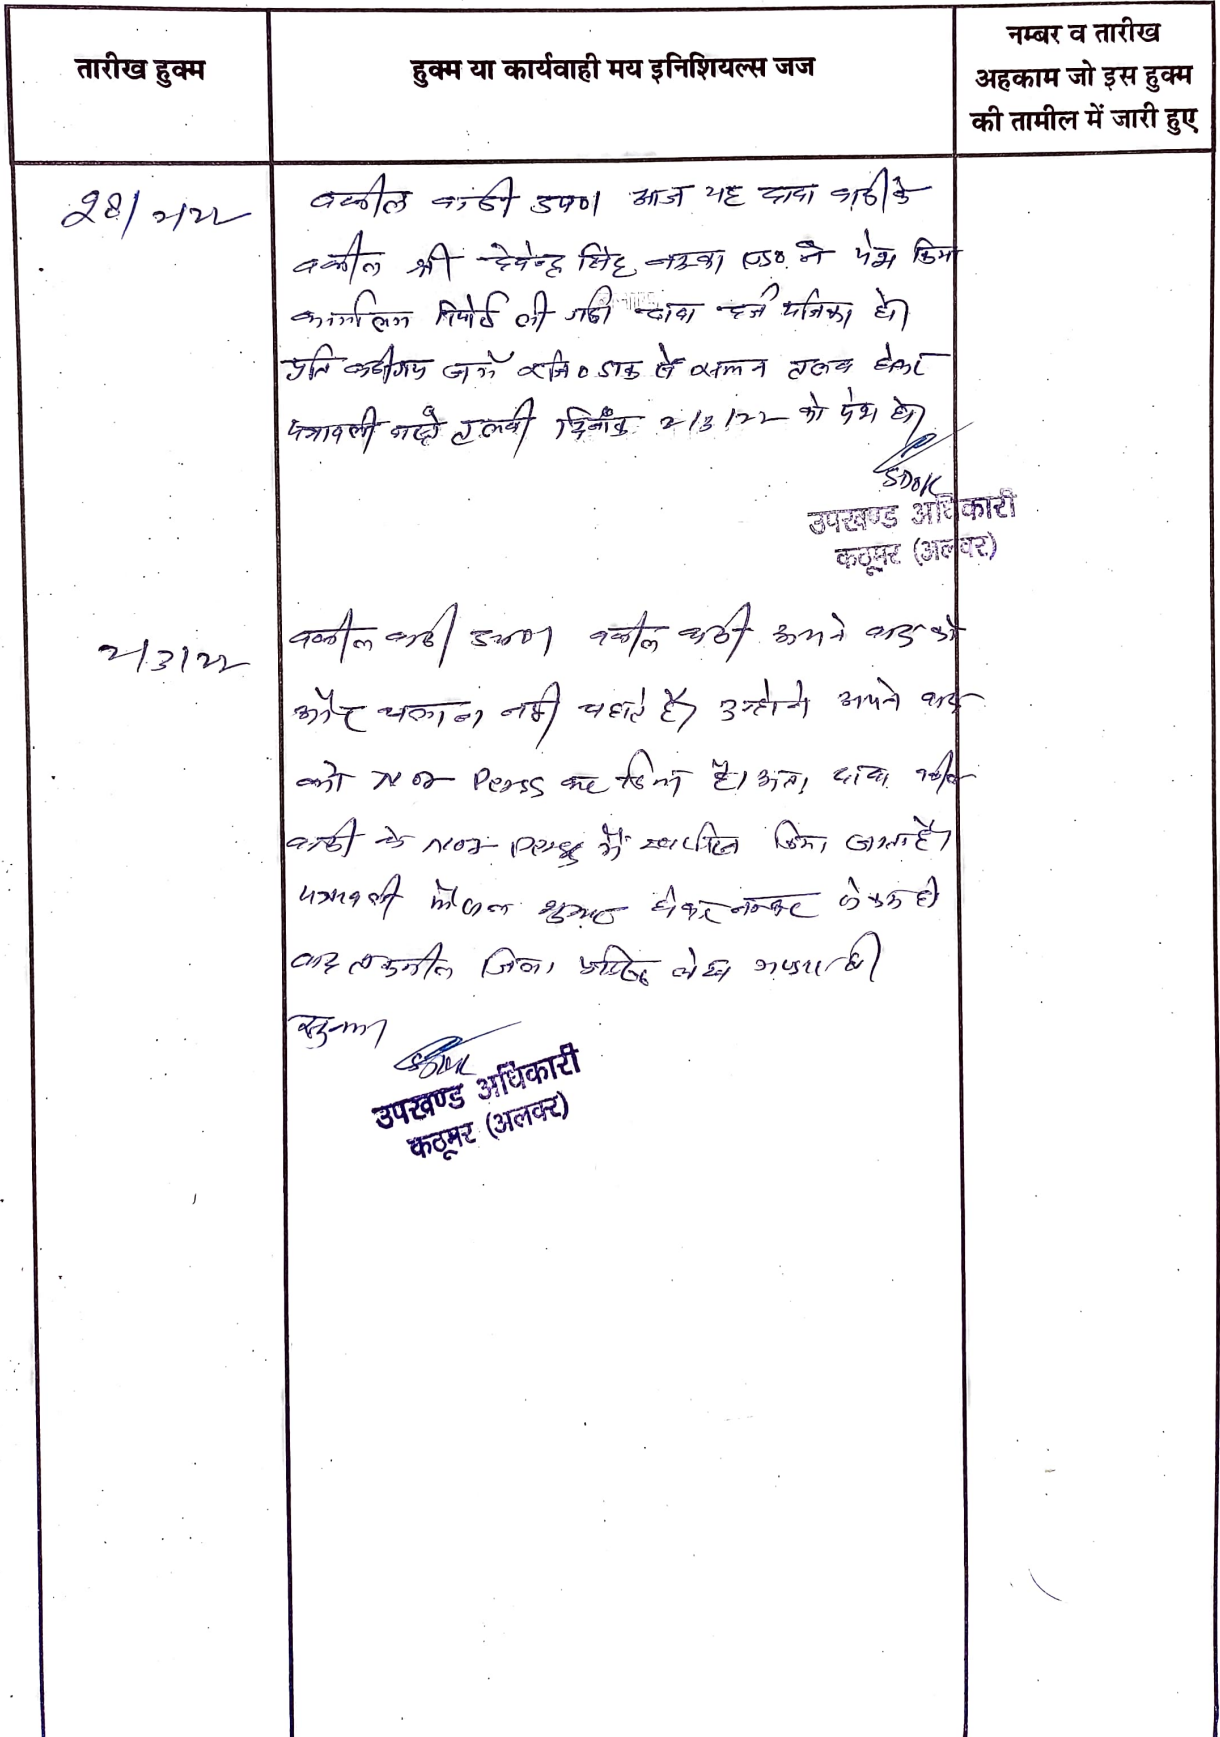 तारीख हुक्म
हुक्म या कार्यवाही मय इनिशियल्स जज
नम्बर व तारीख
अहकाम जो इस हुक्म
की तामील में जारी हुए
28/2/22
वकील वादी उप०। आज यह दावा वादी के
वकील श्री देवेन्द्र सिंह नरूका एड० ने पेश किया
रिपोर्ट ली गई दावा दर्ज हो।
प्रति वादीगण जर्ये रजि० डाक से सम्मन तलब होकर
पत्रावली वास्ते तलबी दिनांक 2/3/22 को पेश हो।
SDOK
उपखण्ड अधिकारी
कठूमर (अलवर)
2/3/22
वकील वादी उप०। वकील वादी अपने वाद को
और चलाना नहीं चहाते है। उन्होने अपने वाद
को Not Press कर दिया है। अतः दावा वकील
वादी के Not Press में किया जाता है।
पत्रावली फैसल शुमार होकर नम्बर से कम हो
बाद तकमील दाखिल हो।
उपखण्ड अधिकारी
कठूमर (अलवर)